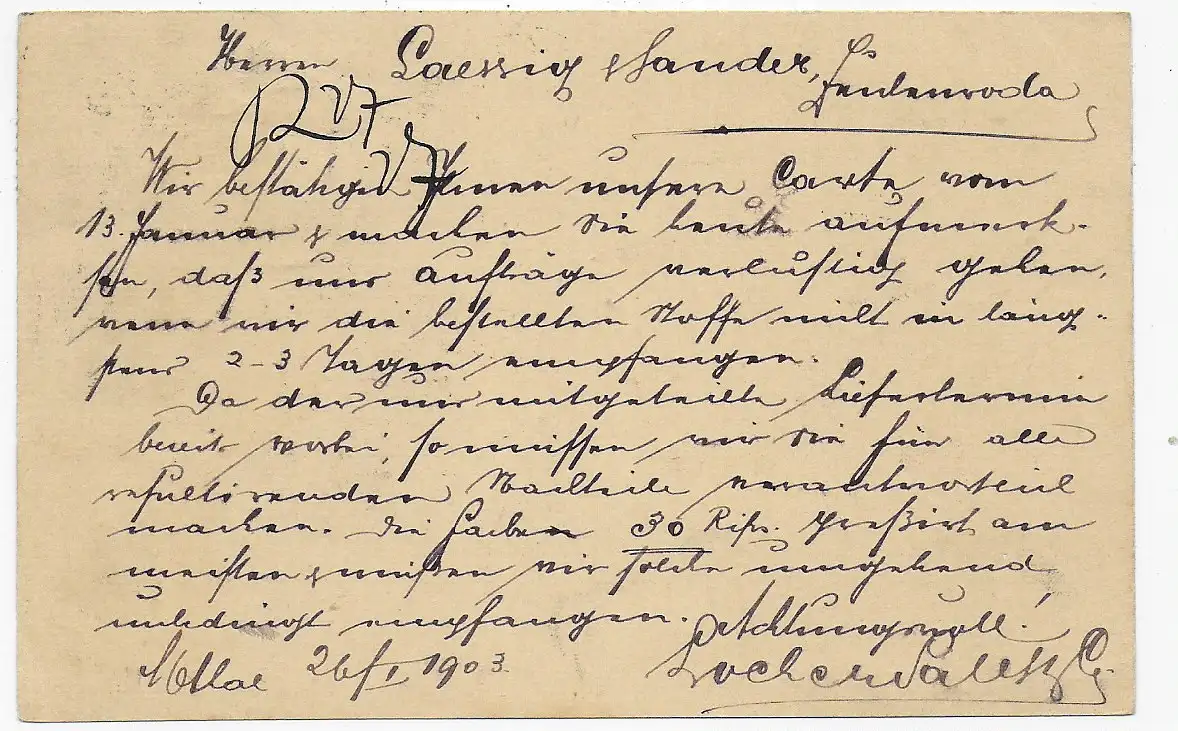 Herren Laessig & Sander,
Zeulenroda
Wir bestätigen Ihnen unsere Carte vom
13. Januar & machen Sie heute aufmerk-
sam, daß uns Aufträge verlustig gehen,
wenn wir die bestellten Stoffe nicht in läng-
stens 2-3 Tagen empfangen.
Da der uns mitgeteilte Liefertermin
bereits vorbei, so müssen wir Sie für alle
resultirenden Nachteile verantwortlich
machen. Die Farben 30 preßirt am
meisten & müßen wir solche umgehend
unbedingt empfangen.
Achtungsvoll!
26/I 1903.